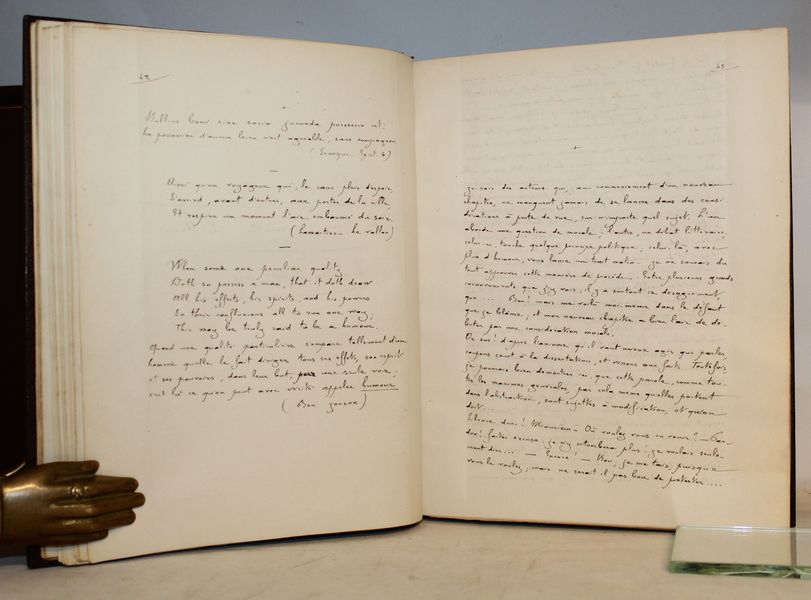 42
Nullius boni sine socio jucunda possessio est:
La possession d'aucun bien n'est agréable, sans compagnon
(Senèque. Epist. 6)
Ainsi qu'un voyageur qui, le cœur plein d'espoir,
S'assied, avant d'entrer, aux portes de la ville,
Et respire un moment l'air embaumé du soir.
(Lamartine. le vallon)
When some one peculiar quality
Doth so possess a man, that it doth draw
All his effects, his spirits, and his powers
In their confluxions all to run one way;
This may be truly said to be a humour.
Quand une qualité particulière s'empare tellement d'un
homme qu'elle le fait diriger tous ses effets, son esprit
et ses pouvoirs, dans leur but, par une seule voie;
c'est là ce qu'on peut avec vérité appeler humour
(Ben Jonson)
43
+
Je sais des auteurs qui, au commencement d'un nouveau
chapitre, ne manquent jamais de se lancer dans des consi-
dérations à perte de vue, sur n'importe quel sujet. L'un
aborde une question de morale; l'autre, un débat littéraire;
celui-ci, touche quelque principe politique; celui-là, avec
plus d'humour, vous lance un trait malin. Je ne saurais du
tout approuver cette manière de procéder. Entre plusieurs grands
inconvénients que j'y vois, il y a surtout ce désagrément,
que.... Bon! mais me voilà moi-même dans le défaut
que je blâme; et mon nouveau chapitre a bien l'air de dé-
buter par une considération morale.
Or sus! d'après l'axiome qu'il vaut mieux agir que parler,
coupons court à la dissertation, et venons aux faits. Toutefois
je pourrais bien démontrer ici, que cette parole, comme tou-
tes les maximes générales, par cela même qu'elles portent
dans l'abstraction, sont sujettes à modification, et qu'on
doit...
Silence donc! Monsieur. Où voulez-vous en venir? — Par-
don! faites excuse: je n'y retomberai plus! je voulais seule-
ment dire... — Encore! — Non; je me tais, puisque
vous le voulez; mais ne serait-il pas bon de protester....